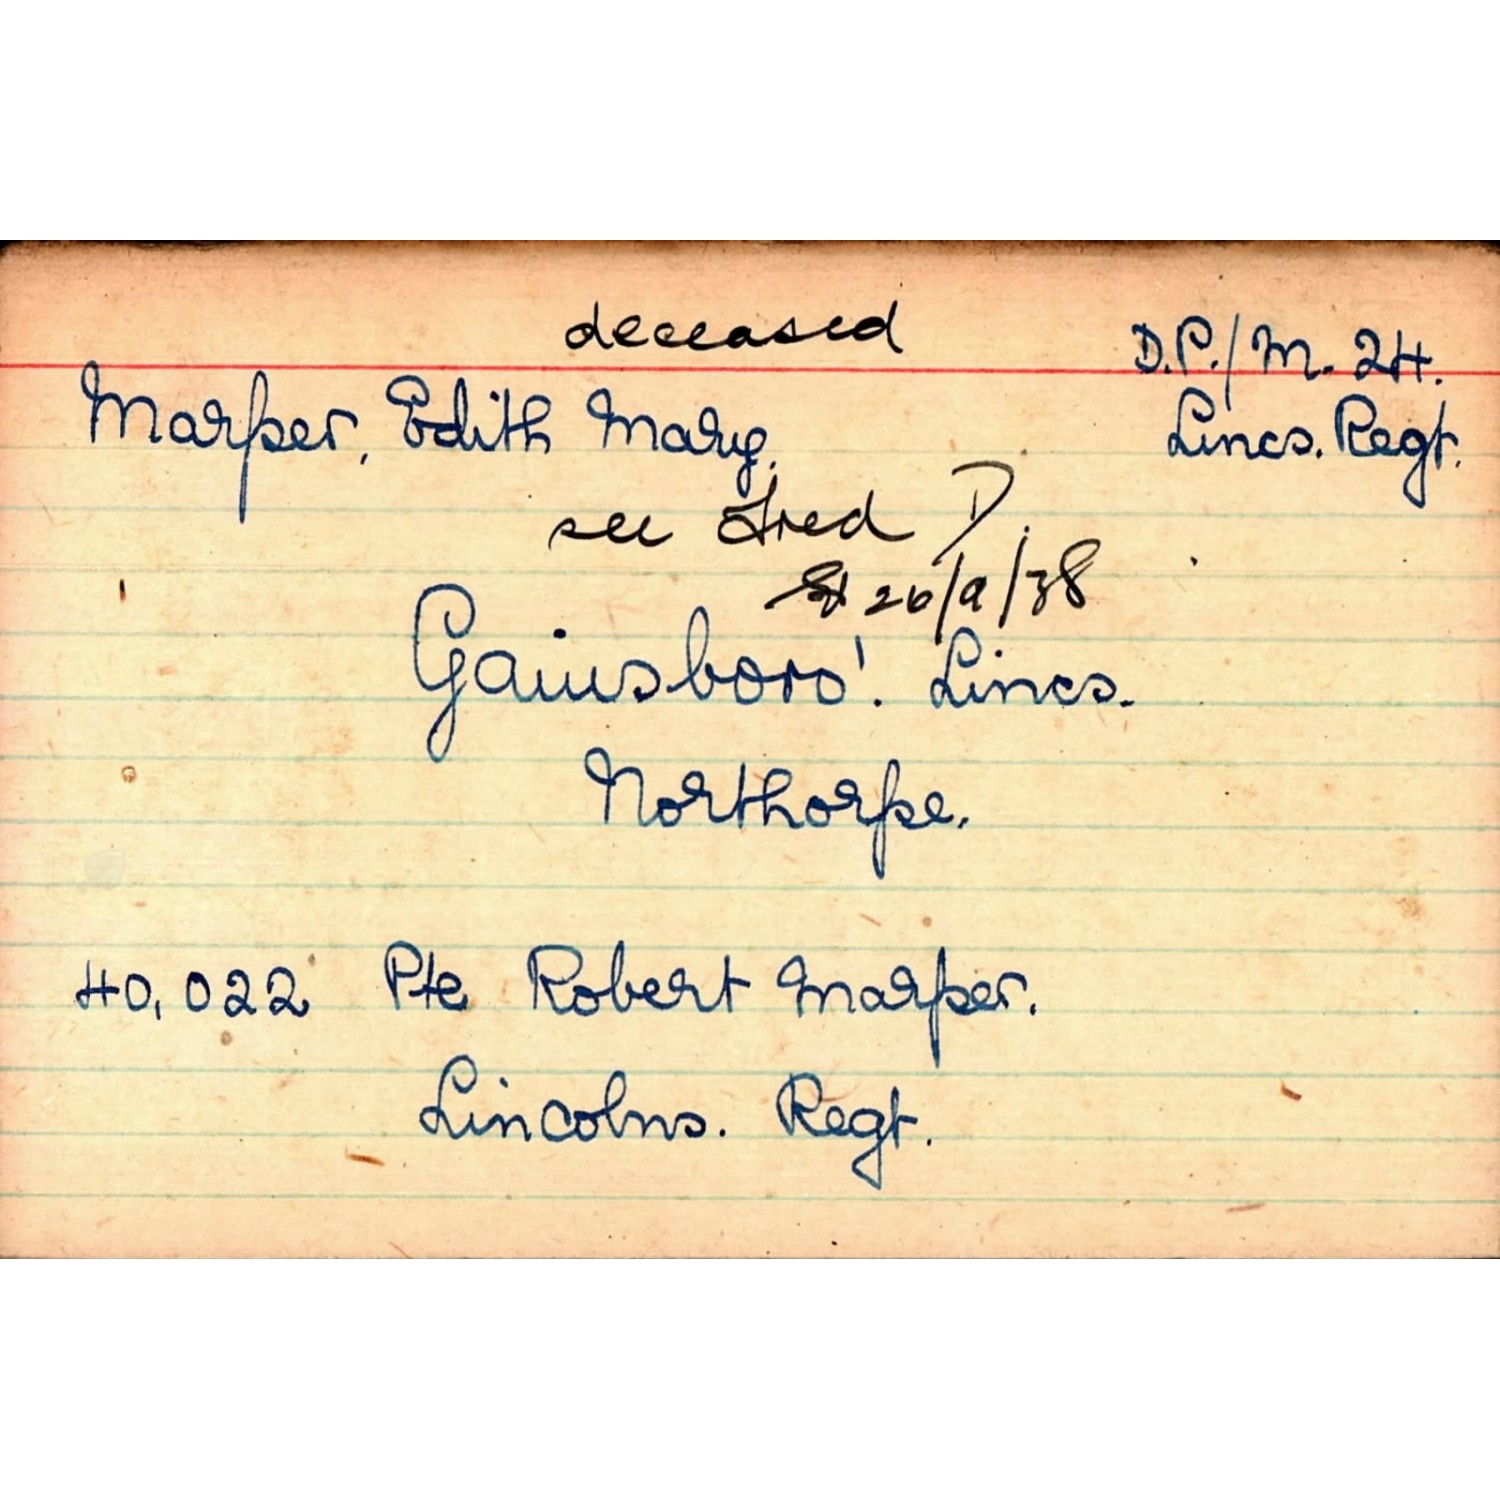 deceased
D.P./M. 24.
Marper, Edith Mary.
Lincs. Regt.
see Fred D.
26/9/38
Gainsboro'. Lincs.
Northorpe.
40,022 Pte Robert Marper.
Lincolns. Regt.